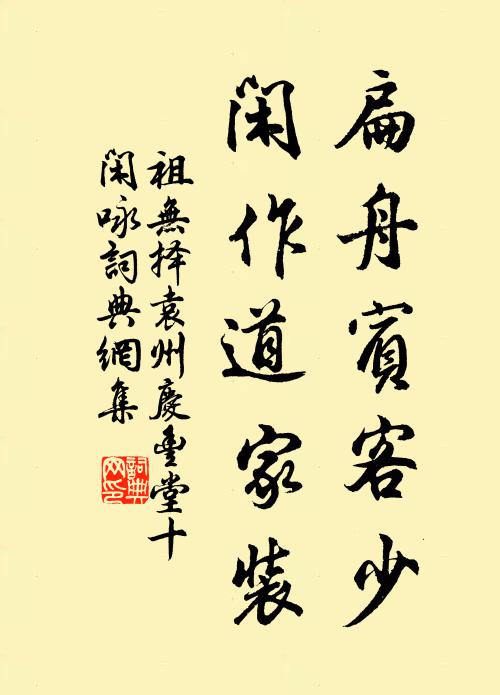 扁舟賓客少
閑作道家裝
祖無择袁州慶豊堂十
閑咏詞典網集
詞典网印